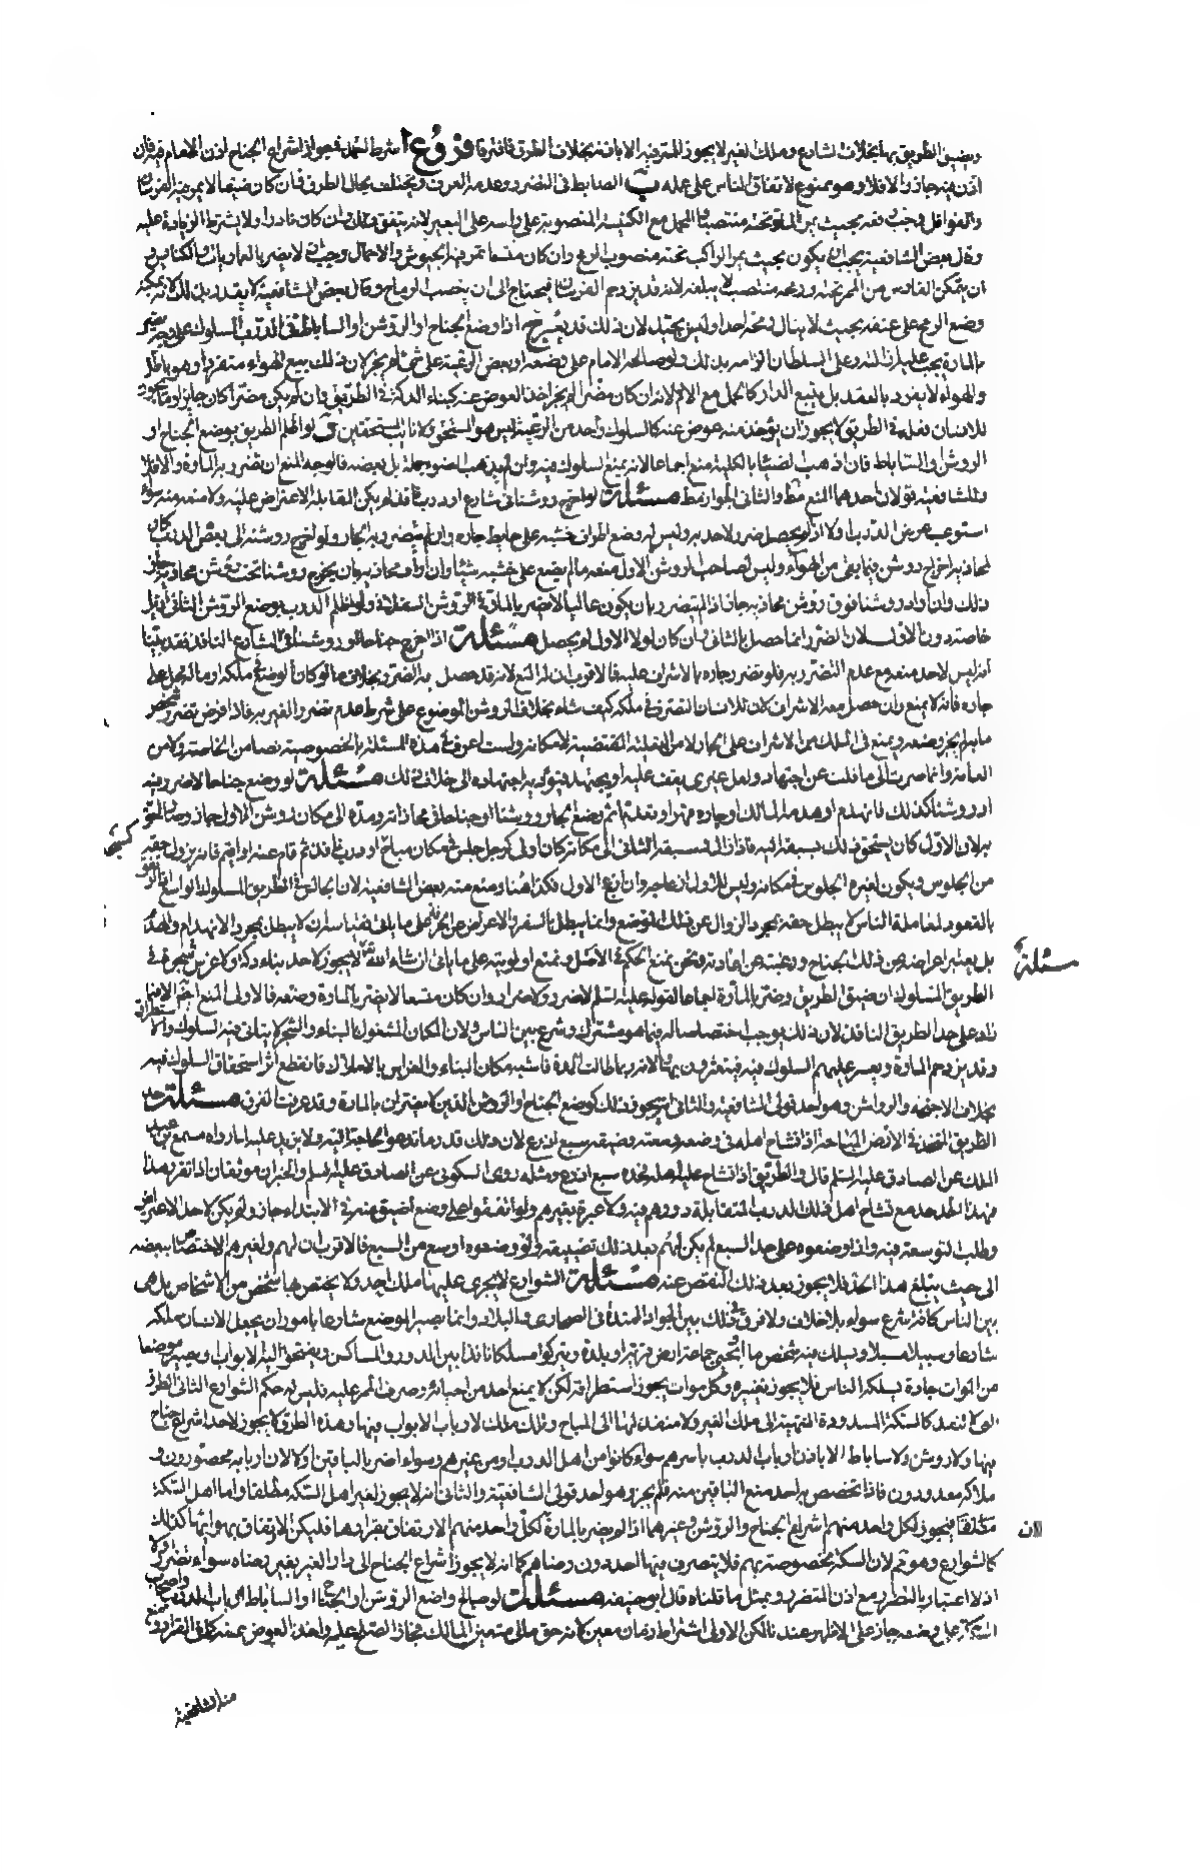 ويضيق الطريق بها بخلاف الشارع وملك الغير لا يجوز التصرف فيه الا باذنه بخلاف الطرق فافترقا فروع ا شرط الشيخ في جواز اشراع الجناح اذن الامام فيه فان
اذن فيه جاز والا فلا وهو ممنوع لاتفاق الناس على عمله ب الضابط في التضرر وعدمه العرف ويختلف بحال الطرق فان كان ضيقا لا يمر فيه الفرسان
والقوافل وجب رفعه بحيث يمر المار تحته منتصبا والمحمل مع الكنيسة المنصوبة على رأسه على البعير لانه يتفق ذلك وان كان نادرا ولا يشترط الزيادة عليه
وقال بعض الشافعية يجب ان يكون بحيث يمر الراكب تحته منصوب الرمح وان كان متسعا تمر فيه الجيوش والاحمال وجب ان لا يضر بالعماريات والكنايس و
ان يتمكن الفارس من الممر تحته ورمحه منتصب لا يبلغه لانه قد يزدحم الفرسان فيحتاج الى ان ينصب الرماح وقال بعض الشافعية لا يقدر بذلك لانه يمكنه
وضع الرمح على عنقه بحيث لا ينال رمحه احدا وليس بجيد لان ذلك قد يعسر ج اذا وضع الجناح او الروشن او الساباط في الدرب المسلوك على وجه يضر
بالمارة يجب عليه ازالته وعلى السلطان الزامه بذلك ولو صالحه الامام على وضعه او بعض الرعية على شيء لم يجز لان ذلك بيع للهواء منفردا وهو باطل
والهواء لا يفرد بالعقد بل يتبع الدار كالحمل مع الام لانه ان كان مضرا لم يجز اخذ العوض عنه كبناء الدكة في الطريق وان لم يكن مضرا كان جايزا وما يجوز
للانسان فعله في الطريق لا يجوز ان يؤخذ منه عوض عنه كالسلوك واحد من الرعية ليس هو المستحق ولا نائب المستحقين لو اظلم الطريق بوضع الجناح او
الروشن والساباط فان اذهب الضياء بالكلية منع اجماعا لانه يمنع السلوك فيه وان لم يذهب الضوء جملة بل بعضه فالوجه المنع ان تضرر به المارة والا فلا
وللشافعية قولان احدهما المنع مط والثاني الجواز مط مسئلة لو اخرج روشنا في شارع او درب نافذ لم يكن لمقابله الاعتراض عليه ولا منعه منه سواء
استوعب عرض الدرب او لا اذا لم يحصل ضرر لاحد به وليس له وضع اطراف خشبه على حايط جاره وان لم يتضرر به الجار ولو اخرج روشنه الى بعض الدرب كان
لمحاذيه اخراج روشن فيما بقى من الهواء وليس لصاحب الروشن الاول منعه ما لم يضع على خشبه شيئا وان اراد محاذيه بان يخرج روشنا تحت روشن محاذيه جاز
ذلك وان اراد روشنا فوق روشن محاذيه جاز اذا لم يتضرر بان يكون عاليا لا يضر بالمارة في الروشن السفلاني ولو اظلم الدرب بوضع الروشن الثاني ازيل
خاصة دون الاول لان الضرر انما حصل بالثاني وان كان لولا الاول لم يحصل مسئلة اذا اخرج جناحا او روشنا في الشارع النافذ فقد بينا
انه ليس لاحد منعه مع عدم التضرر به فلو تضرر جاره بالاشراف عليه فالاقرب ان له المنع لانه قد حصل به الضرر بخلاف ما لو كان الوضع في ملكه او ما اشرف على
جاره فانه لا يمنع وان حصل معه الاشراف لان للانسان التصرف في ملكه كيف شاء بخلاف الروشن الموضوع على شرط عدم تضرر الغير به فاذا فرض تضرر شخص
ما به لم يجز وضعه ويمنع في الملك من الاشراف على الجار لا من التعلية المقتضية لامكانه ولست اعرف في هذه المسئلة بالخصوصية نصا من الخاصة ولا من
العامة وانما صرت الى ما قلت عن اجتهاد ولعل غيري يقف عليه او يجتهد فيؤديه اجتهاده الى خلاف ذلك مسئلة لو وضع جناحا لا ضرر فيه
او روشنا كذلك فانهدم او هدمه المالك او جاره قهرا او تعديا ثم وضع الجار روشنا او جناحا في محاذاته ومده الى مكان روشن الاول جاز وصار احق
به لان الاول كان يستحق ذلك بسبقه اليه فاذا زال فسبقه الثاني الى مكانه كان اولى كرجل جلس في مكان مباح او درب نافذ ثم قام عنه او اقيم فانه يزول حقه
من الجلوس ويكون لغيره الجلوس في مكانه وليس للاول ازعاجه وان ازعج الاول فكذا هنا ومنع منه بعض الشافعية لان الجالس في الطريق المسلوك الواسع
بالقعود لمعاملة الناس لا يبطل حقه بمجرد الزوال عن ذلك الموضع وانما يبطل بالسفر والاعراض عن الحرفة على ما ياتي فقياسه ان لا يبطل بمجرد الانهدام والهدم
بل يعتبر اعراضه عن ذلك الجناح ورغبته عن اعادته ونحن نمنع الحكم في الاصل ونمنع اولويته على ما ياتي ان شاء الله تعالى لا يجوز لاحد بناء دكة ولا غرس شجرة في
الطريق المسلوك ان ضيق الطريق وضر بالمارة اجماعا لقوله عليه السلم لا ضرر ولا ضرار وان كان متسعا لا يضر بالمارة وضعه فالاولى المنع ايضا الا فيما
زاد على حد الطريق النافذ لان ذلك يوجب اختصاصا له فيما هو مشترك وشرع بين الناس ولان المكان المشغول بالبناء والشجر لا يتاتى فيه السلوك والاستطراق
وقد يزدحم المارة ويعسر عليهم السلوك فيه فيتعثرون بهما لانه ربما طالت المدة فاشتبه مكان البناء والغراس بالاملاك فانقطع اثر استحقاق السلوك فيه
بخلاف الاجنحة والرواشن وهو احد قولي الشافعية والثاني انه يجوز ذلك كوضع الجناح او الروشن الذين لا يضران بالمارة وقد عرفت الفرق مسئلة حد
الطريق المتخذ في الارض المباحة اذا تشاح اهله في وضعه وسعته وضيقه سبع اذرع لان ذلك قدر ما تدعو الحاجة اليه ولا يزيد عليه لما رواه مسمع بن عبد
الملك عن الصادق عليه السلم قال والطريق اذا تشاح عليه اهله فحده سبع اذرع ومثله روى السكوني عن الصادق عليه السلم والخبران موثقان اذا تقرر هذا
فهذا الحد حد مع تشاح اهل ذلك الدرب المتقابلة دورهم فيه ولا عبرة بغيرهم ولو اتفقوا على وضع اضيق منه في الابتداء جاز ولم يكن لاحد الاعتراض
وطلب التوسعة فيه واذا وضعوه على حد السبع لم يكن لهم بعد ذلك تضييقه ولو وضعوه اوسع من السبع فالاقرب ان لهم ولغيرهم الاختصاص ببعضه
الى حيث يبلغ هذا الحد فلا يجوز بعد ذلك النقص عنه مسئلة الشوارع لا يجري عليها ملك احد ولا يختص بها شخص من الاشخاص بل هي
بين الناس كافة شرع سواء بلا خلاف ولا فرق في ذلك بين الجواد الممتدة في الصحاري والبلاد وانما يصير الموضع شارعا بامور ان يجعل الانسان ملكه
شارعا وسبيلا مسبلا ويسلك فيه شخص ما او يحيى جماعة ارض قرية او بلدة ويتركوا مسلكا نافذا بين الدور والمساكن ويفتحوا اليه الابواب او يصير موضعا
من الموات جادة يسلكه الناس فلا يجوز تغييره وكل موات يجوز استطراقه لكن لا يمنع احد من احيائه وصرف الممر عليه فليس له حكم الشوارع الثاني الطرق
التي لا تنفذ كالسكة المسدودة المنتهية الى ملك الغير ولا منفذ لها الى المباح وذلك ملك لارباب الابواب فيها وهذه الطرق لا يجوز لاحد اشراع جناح
فيها ولا روشن ولا ساباط الا باذن ارباب الدرب باسرهم سواء كانوا من اهل الدرب او من غيرهم وسواء اضر بالباقين او لا لان اربابه محصورون و
ملاكه معدودون فاذا تخصص به احد منع الباقين منه فلم يجز وهو احد قولي الشافعية والثاني انه لا يجوز لغير اهل السكة مطلقا واما اهل السكة
فيجوز لكل واحد منهم اشراع الجناح والروشن وغيرهما اذا لم يضر بالمارة لان لكل واحد منهم الارتفاق بقرارها فليكن الارتفاق بهوائها كذلك
كالشوارع وهو تم لان السكة مخصوصة بهم فلا يتصرف فيها احد دون رضاهم كما انه لا يجوز اشراع الجناح الى دار الغير بغير رضاه سواء تضرر او لا
اذ لا اعتبار بالضرر مع اذن المتضرر وبمثل ما قلناه قال ابو حنيفه مسئلة لو صالح واضع الروشن او الجناح او الساباط ارباب الدرب واصحاب
السكة على وضعه جاز على الاظهر عندنا لكن الاولى اشتراط زمان معين لانه حق مالي متعين المالك فجاز الصلح عليه واخذ العوض عنه كما في القرار ومنع
منه الشافعية
مسئلة
لان